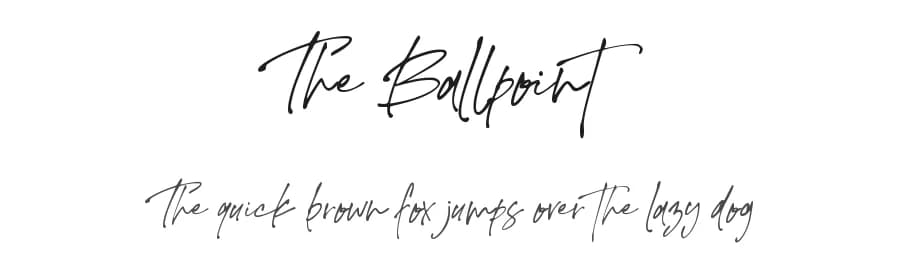 The Ballpoint
The quick brown fox jumps over the lazy dog